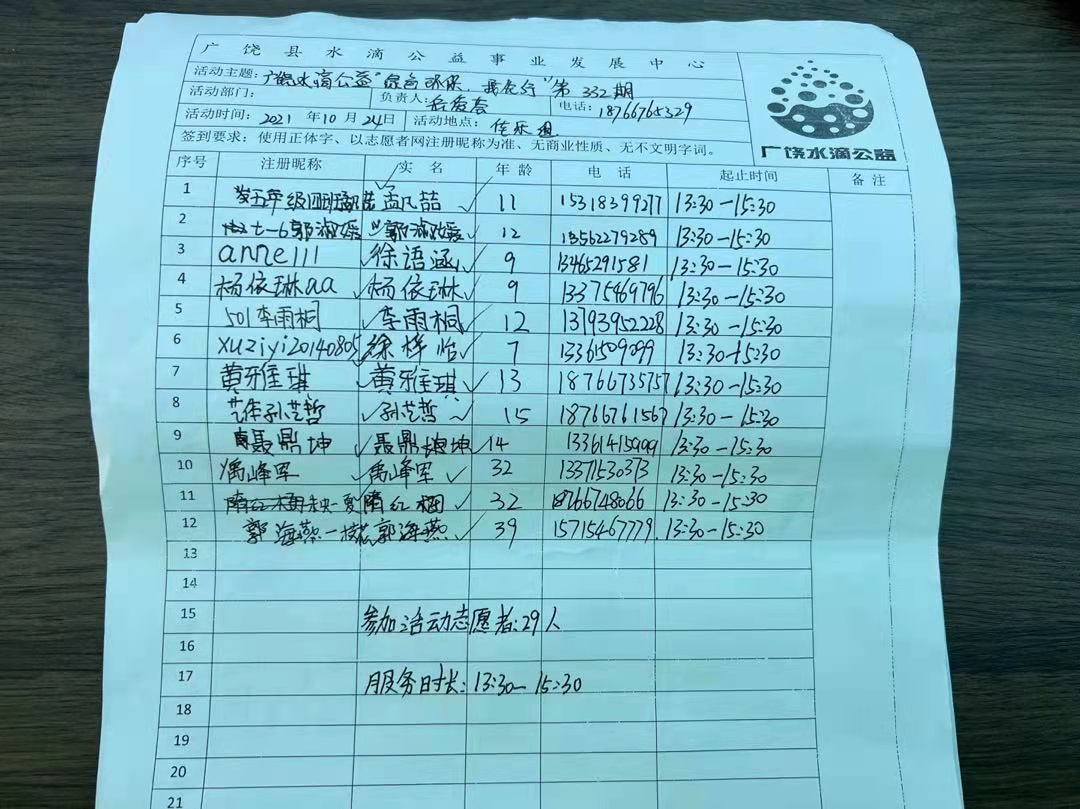 广饶县水滴公益事业发展中心
活动主题：广饶水滴公益"绿色环保，我先行"第332期
活动部门： 负责人： 电话：18766765329
活动时间：2021年10月24日 活动地点：佳乐迪
签到要求：使用正体字、以志愿者网注册昵称为准、无商业性质、无不文明字词。
广饶水滴公益
序号 注册昵称 实名 年龄 电话 起止时间 备注
1 五年级四班 孟凡喆 11 15318399277 13:30-15:30
2 郭淑媛 郭淑媛 12 13562279289 13:30-15:30
3 anne111 徐语涵 9 13465291581 13:30-15:30
4 杨依琳aa 杨依琳 9 13375469796 13:30-15:30
5 501李雨桐 李雨桐 12 13793952228 13:30-15:30
6 xuziyi20140805 徐梓怡 7 13361509099 13:30-15:30
7 黄雅琪 黄雅琪 13 18766735757 13:30-15:30
8 孙艺哲 孙艺哲 15 18766761567 13:30-15:30
9 聂鼎坤 聂鼎坤 14 13361415999 13:30-15:30
10 禹峰军 禹峰军 32 13371530373 13:30-15:30
11 隋红梅 32 18766748066 13:30-15:30
12 郭海燕一枝花 郭海燕 39 15715467779 13:30-15:30
13
14
15 参加活动志愿者：29人
16
17 服务时长：13:30-15:30
18
19
20
21